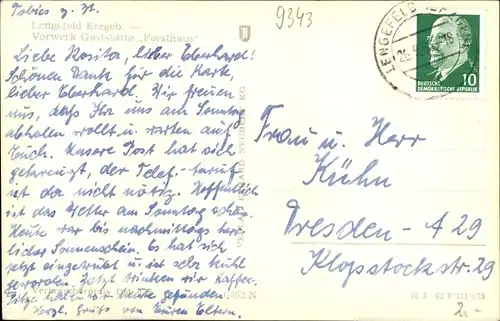 Tobias z. Zt.
Lengefeld Erzgeb. —
Vorwerk Gaststätte „Forsthaus"
Liebe Rosita, lieber Eberhard!
Schönen Dank für die Karte,
lieber Eberhard. Wir freuen
uns, daß Ihr uns am Sonntag
abholen wollt u. warten auf
Euch. Unsere Post hat sich
gekreuzt, der Telef.-anruf
ist da nicht nötig. Hoffentlich
ist das Wetter am Sonntag schön.
Heute war bis nachmittags herr-
licher Sonnenschein. Es hat sich
jetzt eingetrübt u. ist sehr kühl
geworden. Jetzt trinken wir Kaffee.
Pilze haben wir heute gefunden.
Herzl. Gruß von Euren Eltern.
9343
LENGEFELD
10
DEUTSCHE
DEMOKRATISCHE REPUBLIK
Frau u. Herr
Kühn
Dresden - A 29
Klopstockstr. 29
2,-